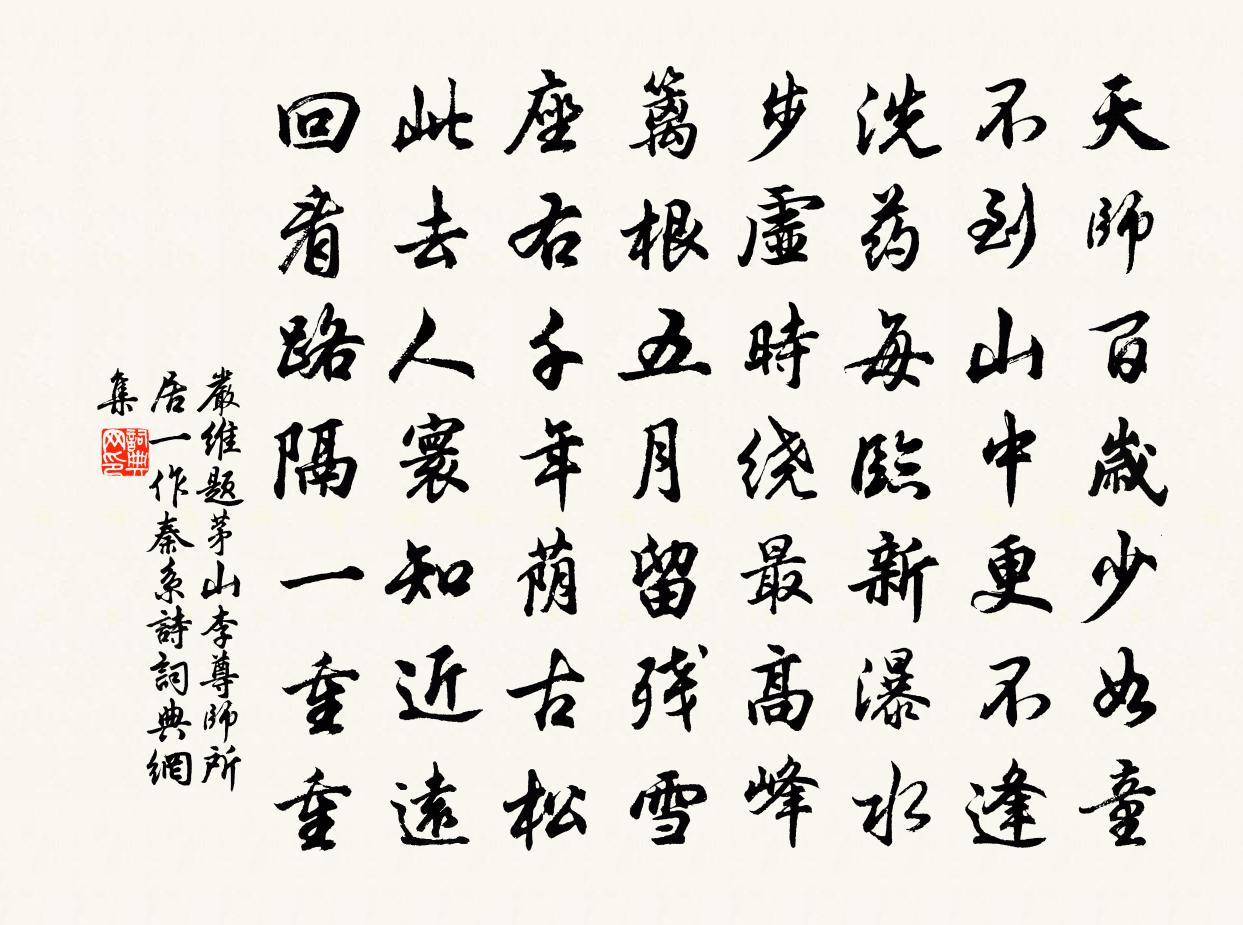 天師百歲少如童
不到山中更不逢
洗药每臨新瀑水
步虛時绕最高峰
篱根五月留残雪
座右千年荫古松
此去人寰知近遠
回看路隔一重重
嚴維題茅山李尊師所
居一作秦系詩詞典網
集
詞典
网印